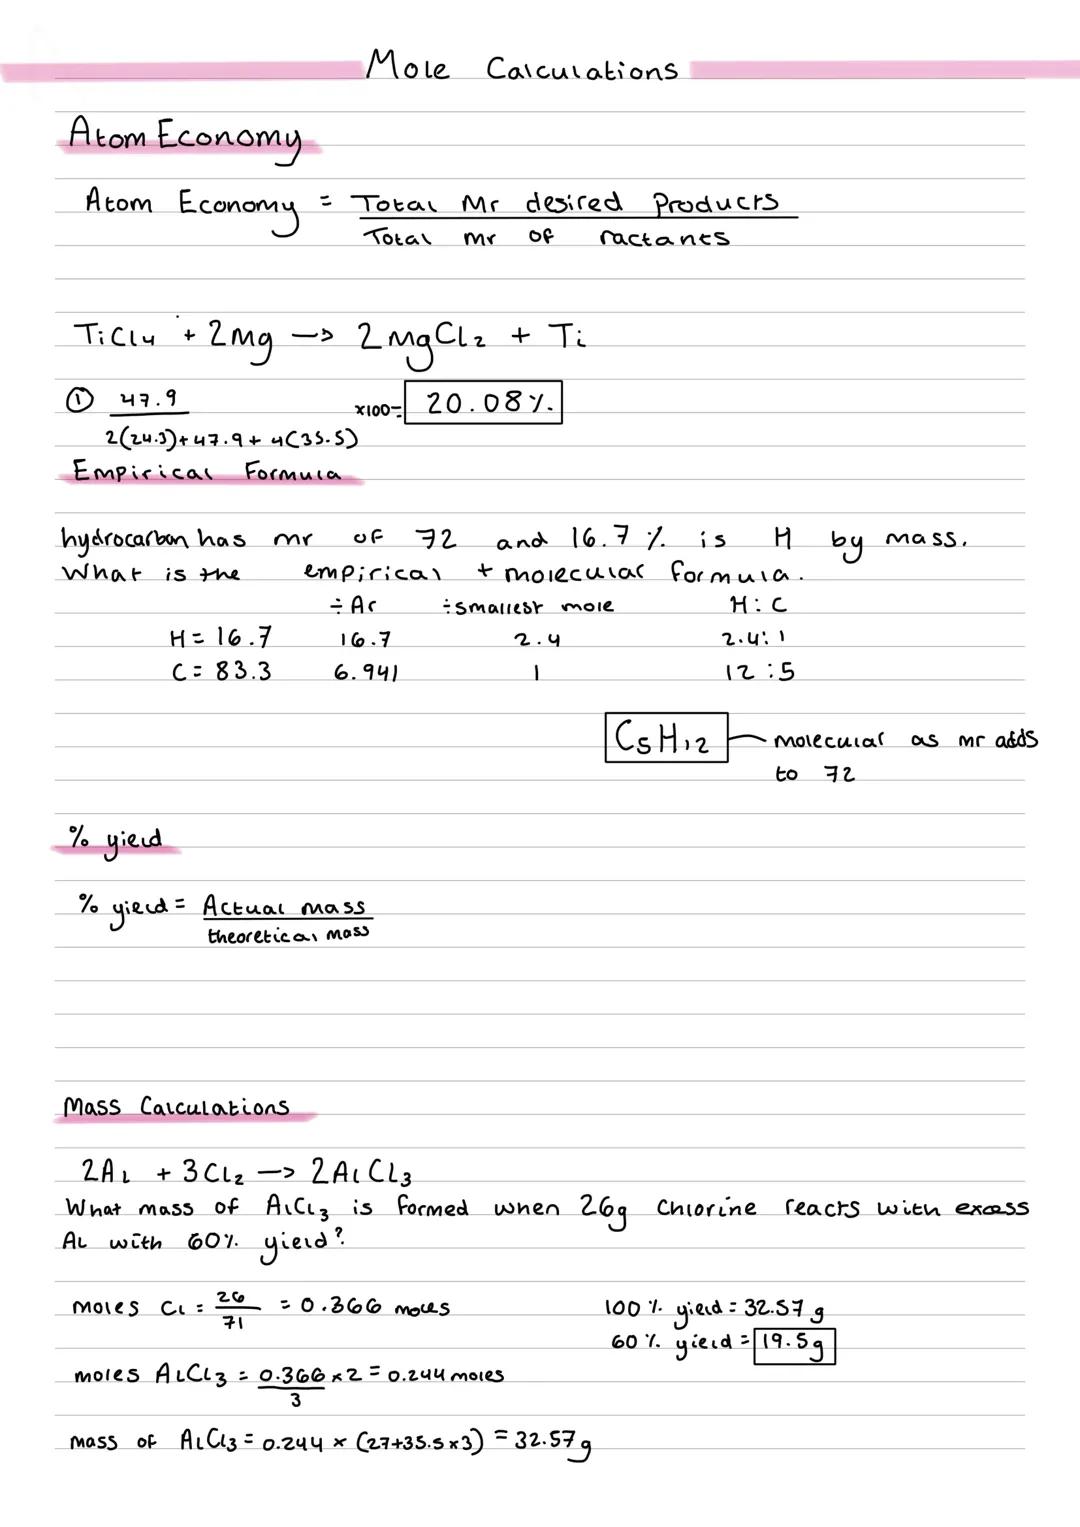 Mole Calculations
Atom Economy
Atom Economy = Total Mr desired Products
Total mr of ractants
TiCl4 + 2Mg -> 2MgCl2 + Ti
① 47.9
x100= 20.08%.
2(24.3)+47.9+ 4(35.5)
Empirical Formula
hydrocarbon has mr of 72 and 16.7% is H by mass.
What is the empirical + molecular formula.
÷ Ar ÷smallest mole H:C
H= 16.7 16.7 2.4 2.4:1
C= 83.3 6.941 1 12:5
C5H12 molecular as mr adds
to 72
% yield
% yield = Actual mass
theoretical mass
Mass Calculations
2Al + 3Cl2 -> 2AlCl3
What mass of AlCl3 is formed when 26g Chlorine reacts with excess
Al with 60% yield?
moles Cl = 26 = 0.366 moles 100% yield = 32.57g
71 60% yield = 19.5g
moles AlCl3 = 0.366 x2 = 0.244 moles
3
mass of AlCl3 = 0.244 x (27+35.5x3) = 32.57g